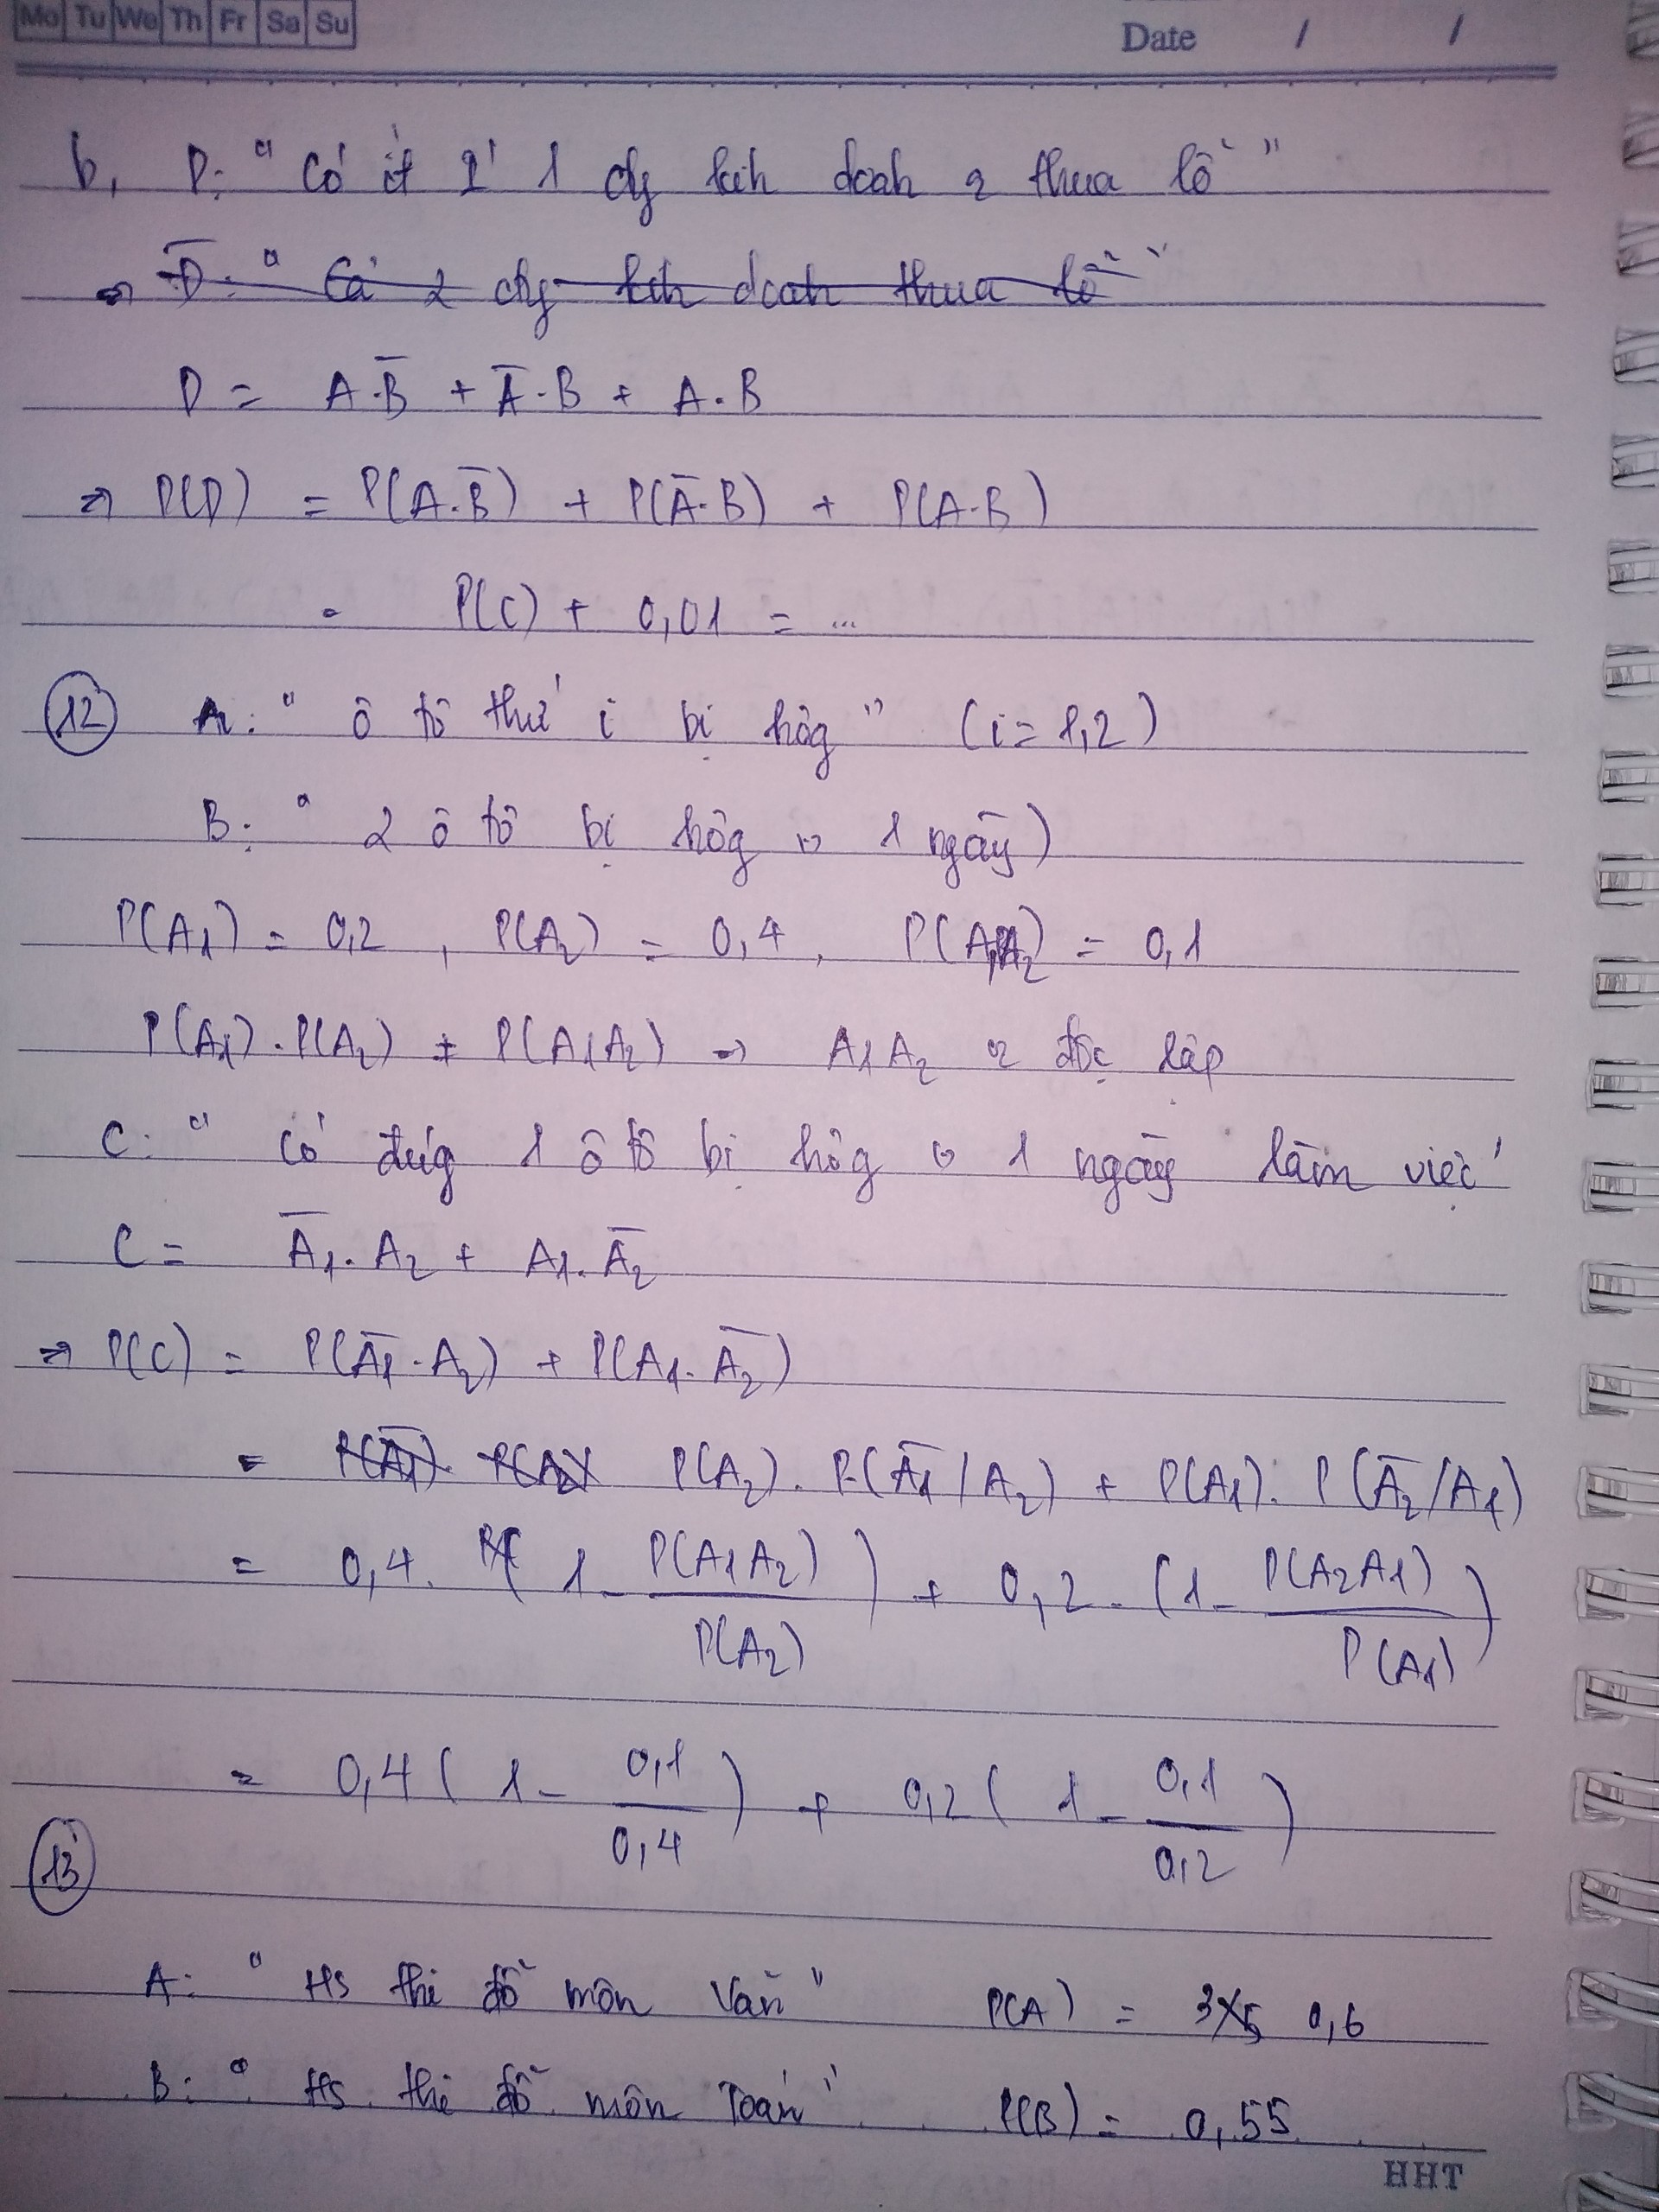 Mo Tu We Th Fr Sa Su
Date / /
b, D: " Có ít I' 1 cty kih doah 2 thua lỗ "
=> D̅: " Cả 2 cty kih doah thua lỗ "
D = A.B̅ + A̅.B + A.B
=> P(D) = P(A.B̅) + P(A̅.B) + P(A.B)
= P(C) + 0,01 = ...
(12) Ai: " ô tô thứ i bị hỏg " (i = 1,2)
B: " 2 ô tô bị hỏg 1 ngày)
P(A₁) = 0,2 , P(A₂) = 0,4 , P(A₁A₂) = 0,1
P(A₁).P(A₂) ≠ P(A₁A₂) => A₁A₂ độc lập
C: " Có đúg 1 ô tô bị hỏg 1 ngày làm việc '
C = A̅₁.A₂ + A₁.A̅₂
=> P(C) = P(A̅₁.A₂) + P(A₁.A̅₂)
= P(A̅₁). P(A₂) P(A₂). P(A̅₁/A₂) + P(A₁). P(A̅₂/A₁)
= 0,4. ( 1 - P(A₁A₂)/P(A₂) ) + 0,2 . (1 - P(A₂A₁)/P(A₁))
= 0,4 ( 1 - 0,1/0,4 ) + 0,2 ( 1 - 0,1/0,2 )
(13)
A: " HS thi đỗ môn Văn " P(A) = 0,6
B: " HS thi đỗ môn Toán ' P(B) = 0,55
HHT